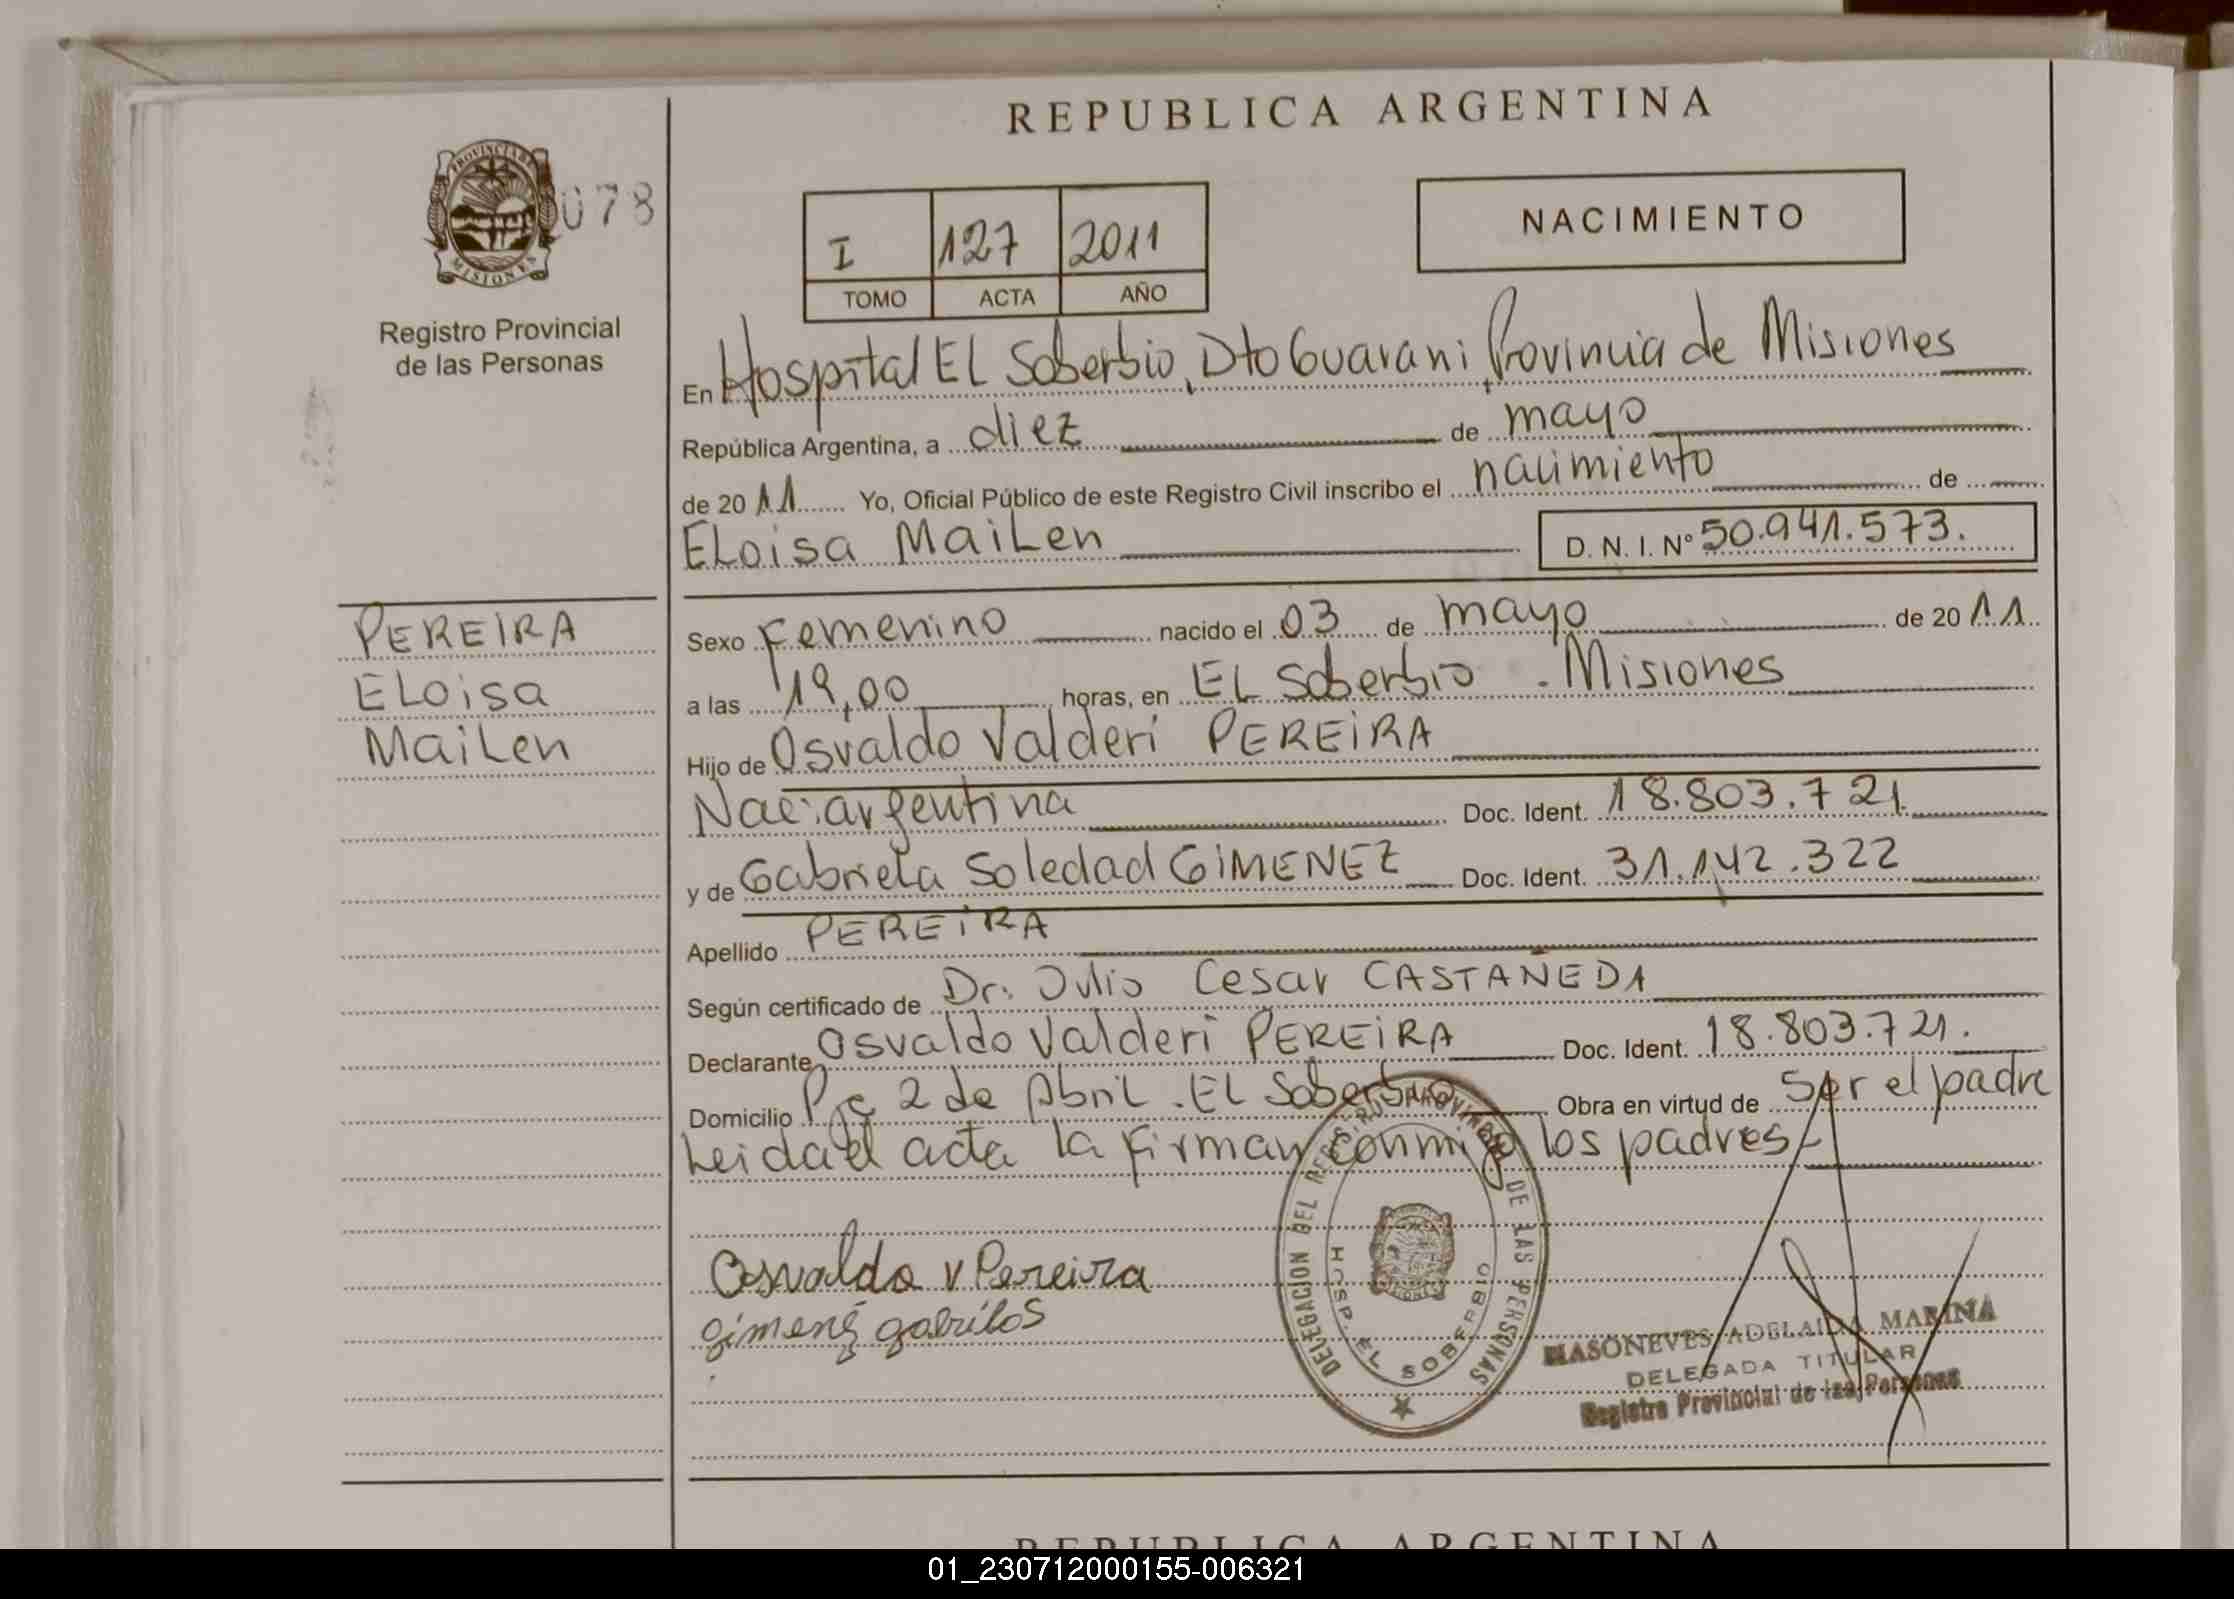 REPUBLICA ARGENTINA
PROVINCIA DE
MISIONES
078
Registro Provincial
de las Personas
I 127 2011
TOMO ACTA AÑO
NACIMIENTO
En Hospital EL Soberbio, Dto Guarani, Provincia de Misiones
República Argentina, a diez de mayo
de 2011 Yo, Oficial Público de este Registro Civil inscribo el nacimiento de
ELoisa MaiLen D. N. I. Nº 50.941.573.
PEREIRA
ELoisa
MaiLen
Sexo Femenino nacido el 03 de mayo de 2011
a las 19,00 horas, en EL Soberbio - Misiones
Hijo de Osvaldo Valderi PEREIRA
Nac: argentina Doc. Ident. 18.803.721.
y de Gabriela Soledad GIMENEZ Doc. Ident. 31.142.322
Apellido PEREIRA
Según certificado de Dr. Julio Cesar CASTAÑEDA
Declarante Osvaldo Valderi PEREIRA Doc. Ident. 18.803.721.
Domicilio 2 de Abril. EL Soberbio Obra en virtud de Ser el padre
Leida el acta la firman conmigo los padres
Osvaldo V Pereira
DELEGACION DEL REGISTRO PROVINCIAL DE LAS PERSONAS
HOSP. EL SOBERBIO
ADELAIDA MARINA
DELEGADA TITULAR
Registro Provincial de las Personas
REPUBLICA ARGENTINA
01_230712000155-006321